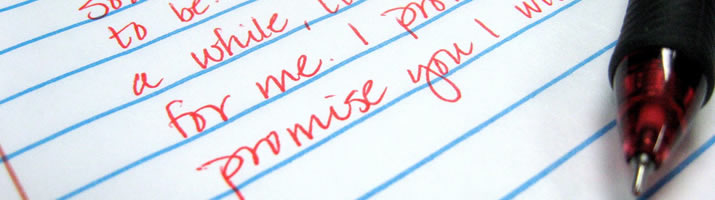 to be.
a while, I
for me. I pro
promise you I w